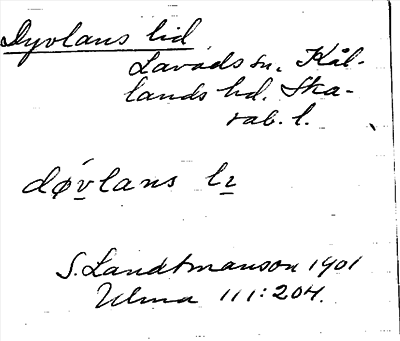 Dyvlans lid
Lavads sn. Kål-
lands hd. Ska-
rab. l.
dǿvlans lɪ
S. Landtmanson 1901
Ulma 111:204.